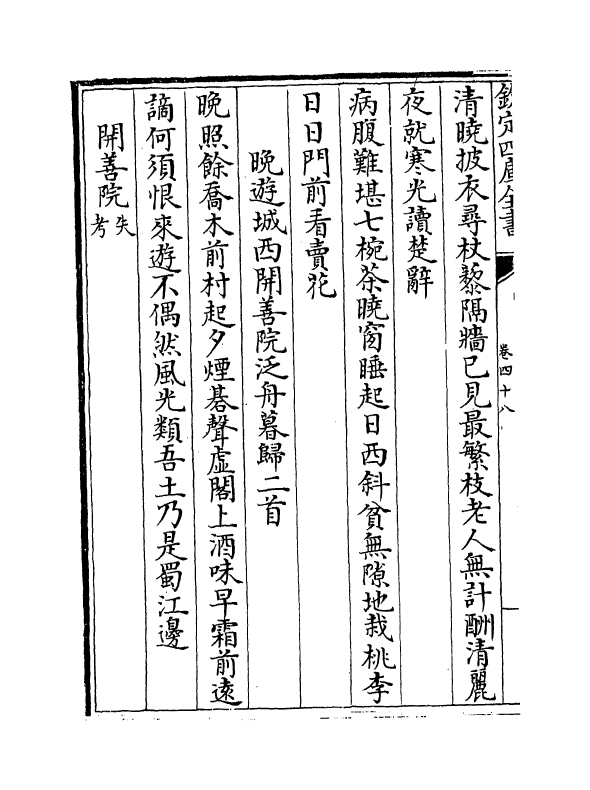 欽定四庫全書
卷四十八
清曉披衣尋杖藜隔牆已見最繁枝老人無計酬清麗
夜就寒光讀楚辭
病腹難堪七椀茶曉窗睡起日西斜貧無隙地栽桃李
日日門前看賣花
晚遊城西開善院泛舟暮歸二首
晚照餘喬木前村起夕煙棊聲虛閣上酒味早霜前遠
謫何須恨來遊不偶然風光類吾土乃是蜀江邊
開善院失考